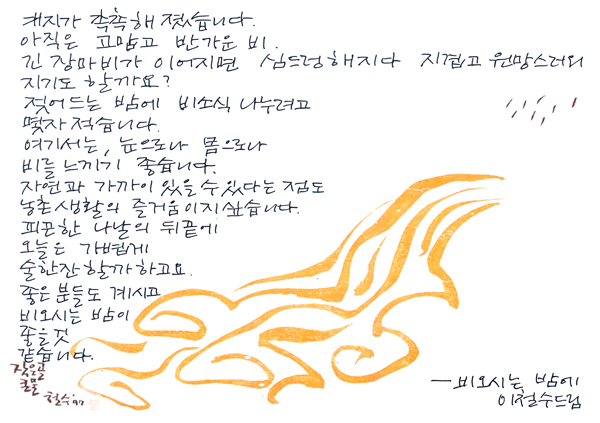 대지가 촉촉해 졌습니다.
아직은 고맙고 반가운 비.
긴 장마비가 이어지면 심드렁해지다 지겹고 원망스러워
지기도 할까요?
젖어드는 밤에 비소식 나누려고
몇자 적습니다.
여기서는, 눈으로나 몸으로나
비를 느끼기 좋습니다.
자연과 가까이 있을 수 있다는 점도
농촌 생활의 즐거움이지 싶습니다.
피곤한 나날의 뒤끝에
오늘은 가볍게
술한잔 할까 하고요.
좋은 분들도 계시고
비오시는 밤이
좋을 것
같습니다.
철수 '97
— 비오시는 밤에
이철수드림